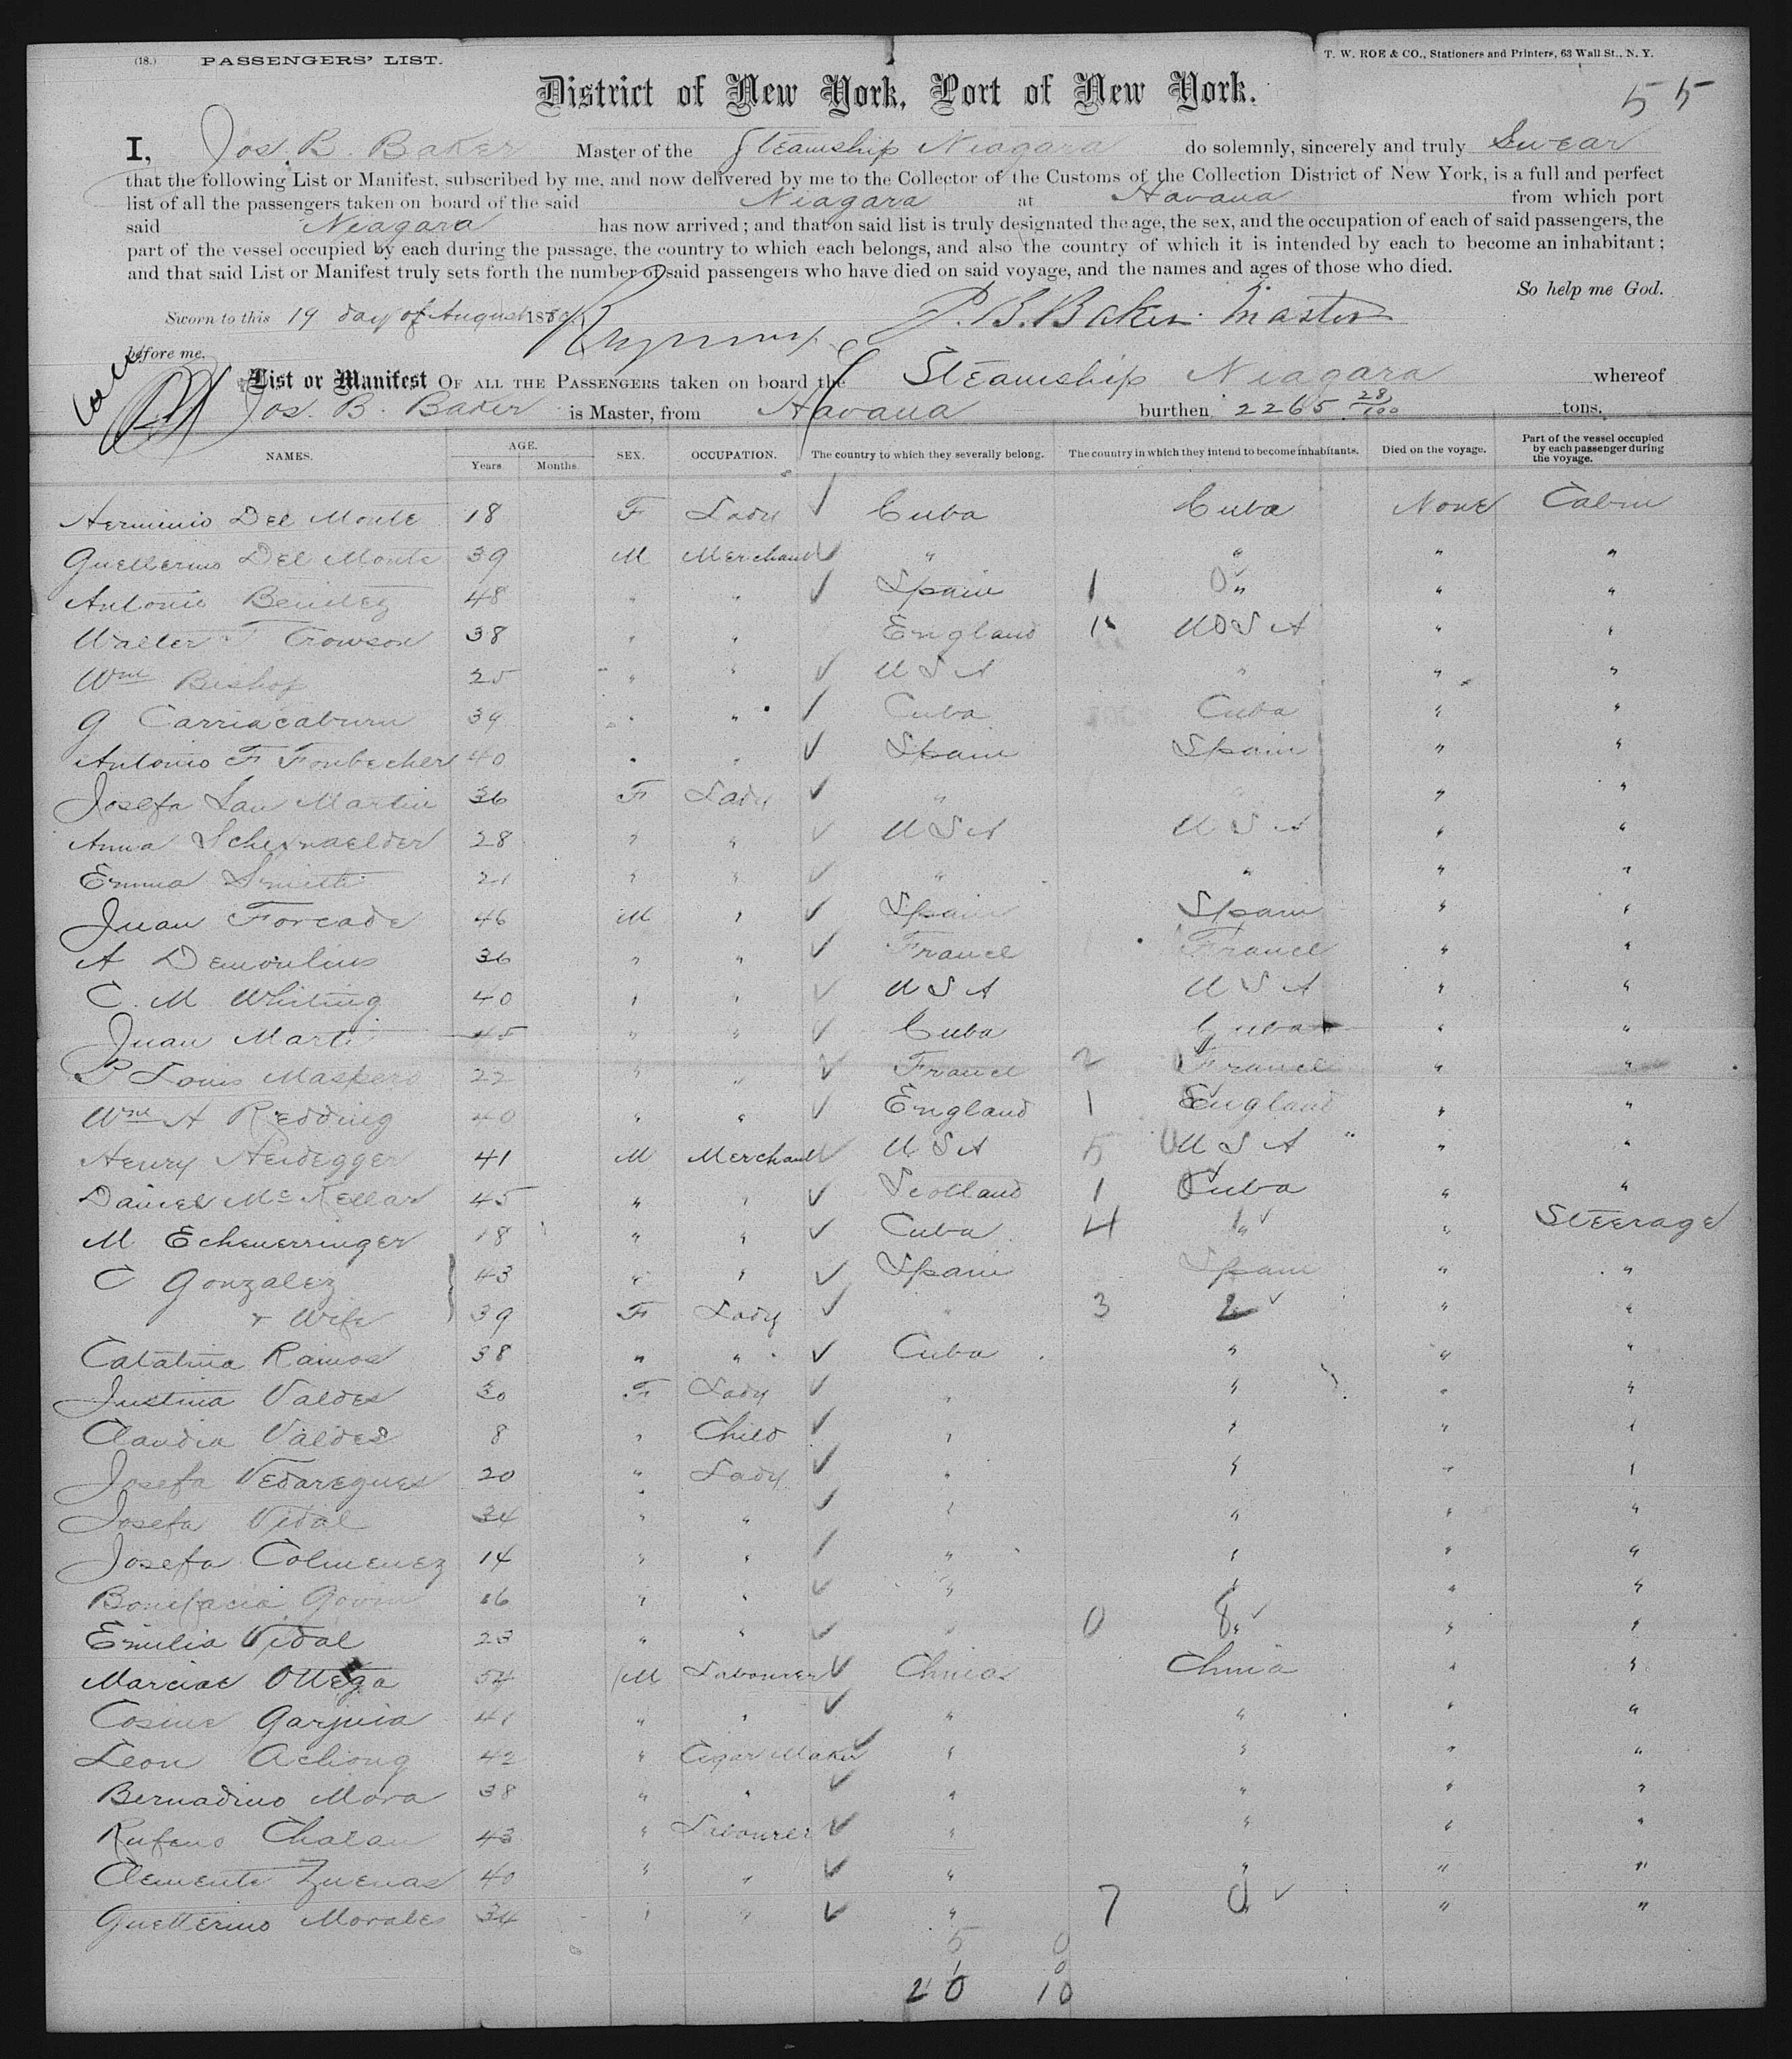 (18.) PASSENGERS' LIST. T. W. ROE & CO., Stationers and Printers, 63 Wall St., N. Y.
District of New York, Port of New York.
5 5
I, Jos. B. Baker Master of the Steamship Niagara do solemnly, sincerely and truly Swear
that the following List or Manifest, subscribed by me, and now delivered by me to the Collector of the Customs of the Collection District of New York, is a full and perfect
list of all the passengers taken on board of the said Niagara at Havana from which port
said Niagara has now arrived; and that on said list is truly designated the age, the sex, and the occupation of each of said passengers, the
part of the vessel occupied by each during the passage, the country to which each belongs, and also the country of which it is intended by each to become an inhabitant;
and that said List or Manifest truly sets forth the number of said passengers who have died on said voyage, and the names and ages of those who died.
So help me God.
Sworn to this 19 day of August 18 B. Baker Master
before me.
List or Manifest OF ALL THE PASSENGERS taken on board the Steamship Niagara whereof
Jos. B. Baker is Master, from Havana burthen 2265 28/100 tons.
NAMES. AGE. Years. Months. SEX. OCCUPATION. The country to which they severally belong. The country in which they intend to become inhabitants. Died on the voyage. Part of the vessel occupied by each passenger during the voyage.
Herminio Del Monte 18 F Lady Cuba Cuba None Cabin
Guellermo Del Monte 39 M Merchant " " " "
Antonio Benitez 48 " " Spain 1 0 " " "
Walter F Crowson 38 " " England 1 U S A " "
Wm Bishop 25 " " U S A " " "
G Carriacaburu 39 " " Cuba Cuba " "
Antonio F Fonbecher 40 " " Spain Spain " "
Josefa San Martin 36 F Lady " " " "
Anna Schexnaelder 28 " " U S A U S A " "
Emma Smith 21 " " " " " "
Juan Forcade 46 M " Spain Spain " "
A Demoulins 36 " " France France " "
C. M Whiting 40 " " U S A U S A " "
Juan Marti 45 " " Cuba Cuba " "
P Louis Maspero 22 " " France 2 France " "
Wm A Redding 40 " " England 1 England " "
Henry Heidegger 41 M Merchant U S A 5 0 U S A " " "
Daniel McKellar 45 " " Scotland 1 Cuba " "
M Echeuerringer 18 " " Cuba 4 1 " " Steerage
C Gonzalez 43 " " Spain Spain " "
& Wife 39 F Lady " 3 2 " "
Catalina Ramos 38 " " Cuba " " "
Justina Valdes 30 F Lady " " " "
Claudia Valdes 8 " Child " " " "
Josefa Vedaregues 20 " Lady " " " "
Josefa Vidal 34 " " " " " "
Josefa Colmenez 14 " " " " " "
Bonifacia Govin 16 " " " " " "
Emilia Vidal 23 " " " 0 8 " " "
Marcial Ortega 54 M Labourer China China " "
Cosme Garjuia 41 " " " " " "
Leon Achong 42 " Cigar Maker " " " "
Bernadino Mora 38 " " " " " "
Rufeno Chalau 43 " Labourer " " " "
Clemente Zuenas 40 " " " " " "
Guellermo Morales 34 " " " 7 0 " " "
5 0
1 0
20 10